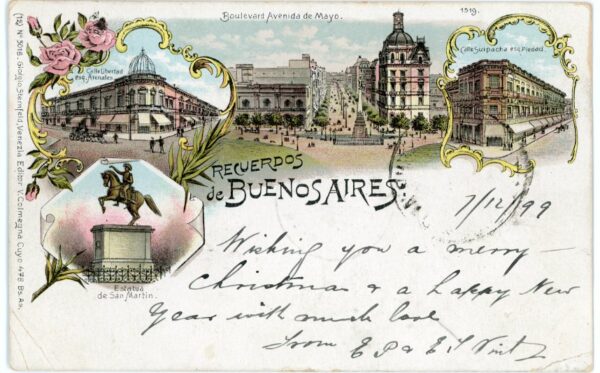 Boulevard Avenida de Mayo.
1519.
Calle Libertad
esq. Arenales
Calle Suipacha esq. Piedad.
RECUERDOS
de BUENOS AIRES
Estatua
de San Martin.
(12) Nº 5018. Giorgio Steinfeld, Venezia Editor V. Colmegna Cuyo 478 Bs. As.
7/12/99
Wishing you a merry
Christmas & a happy New
Year with much love
from E P & E